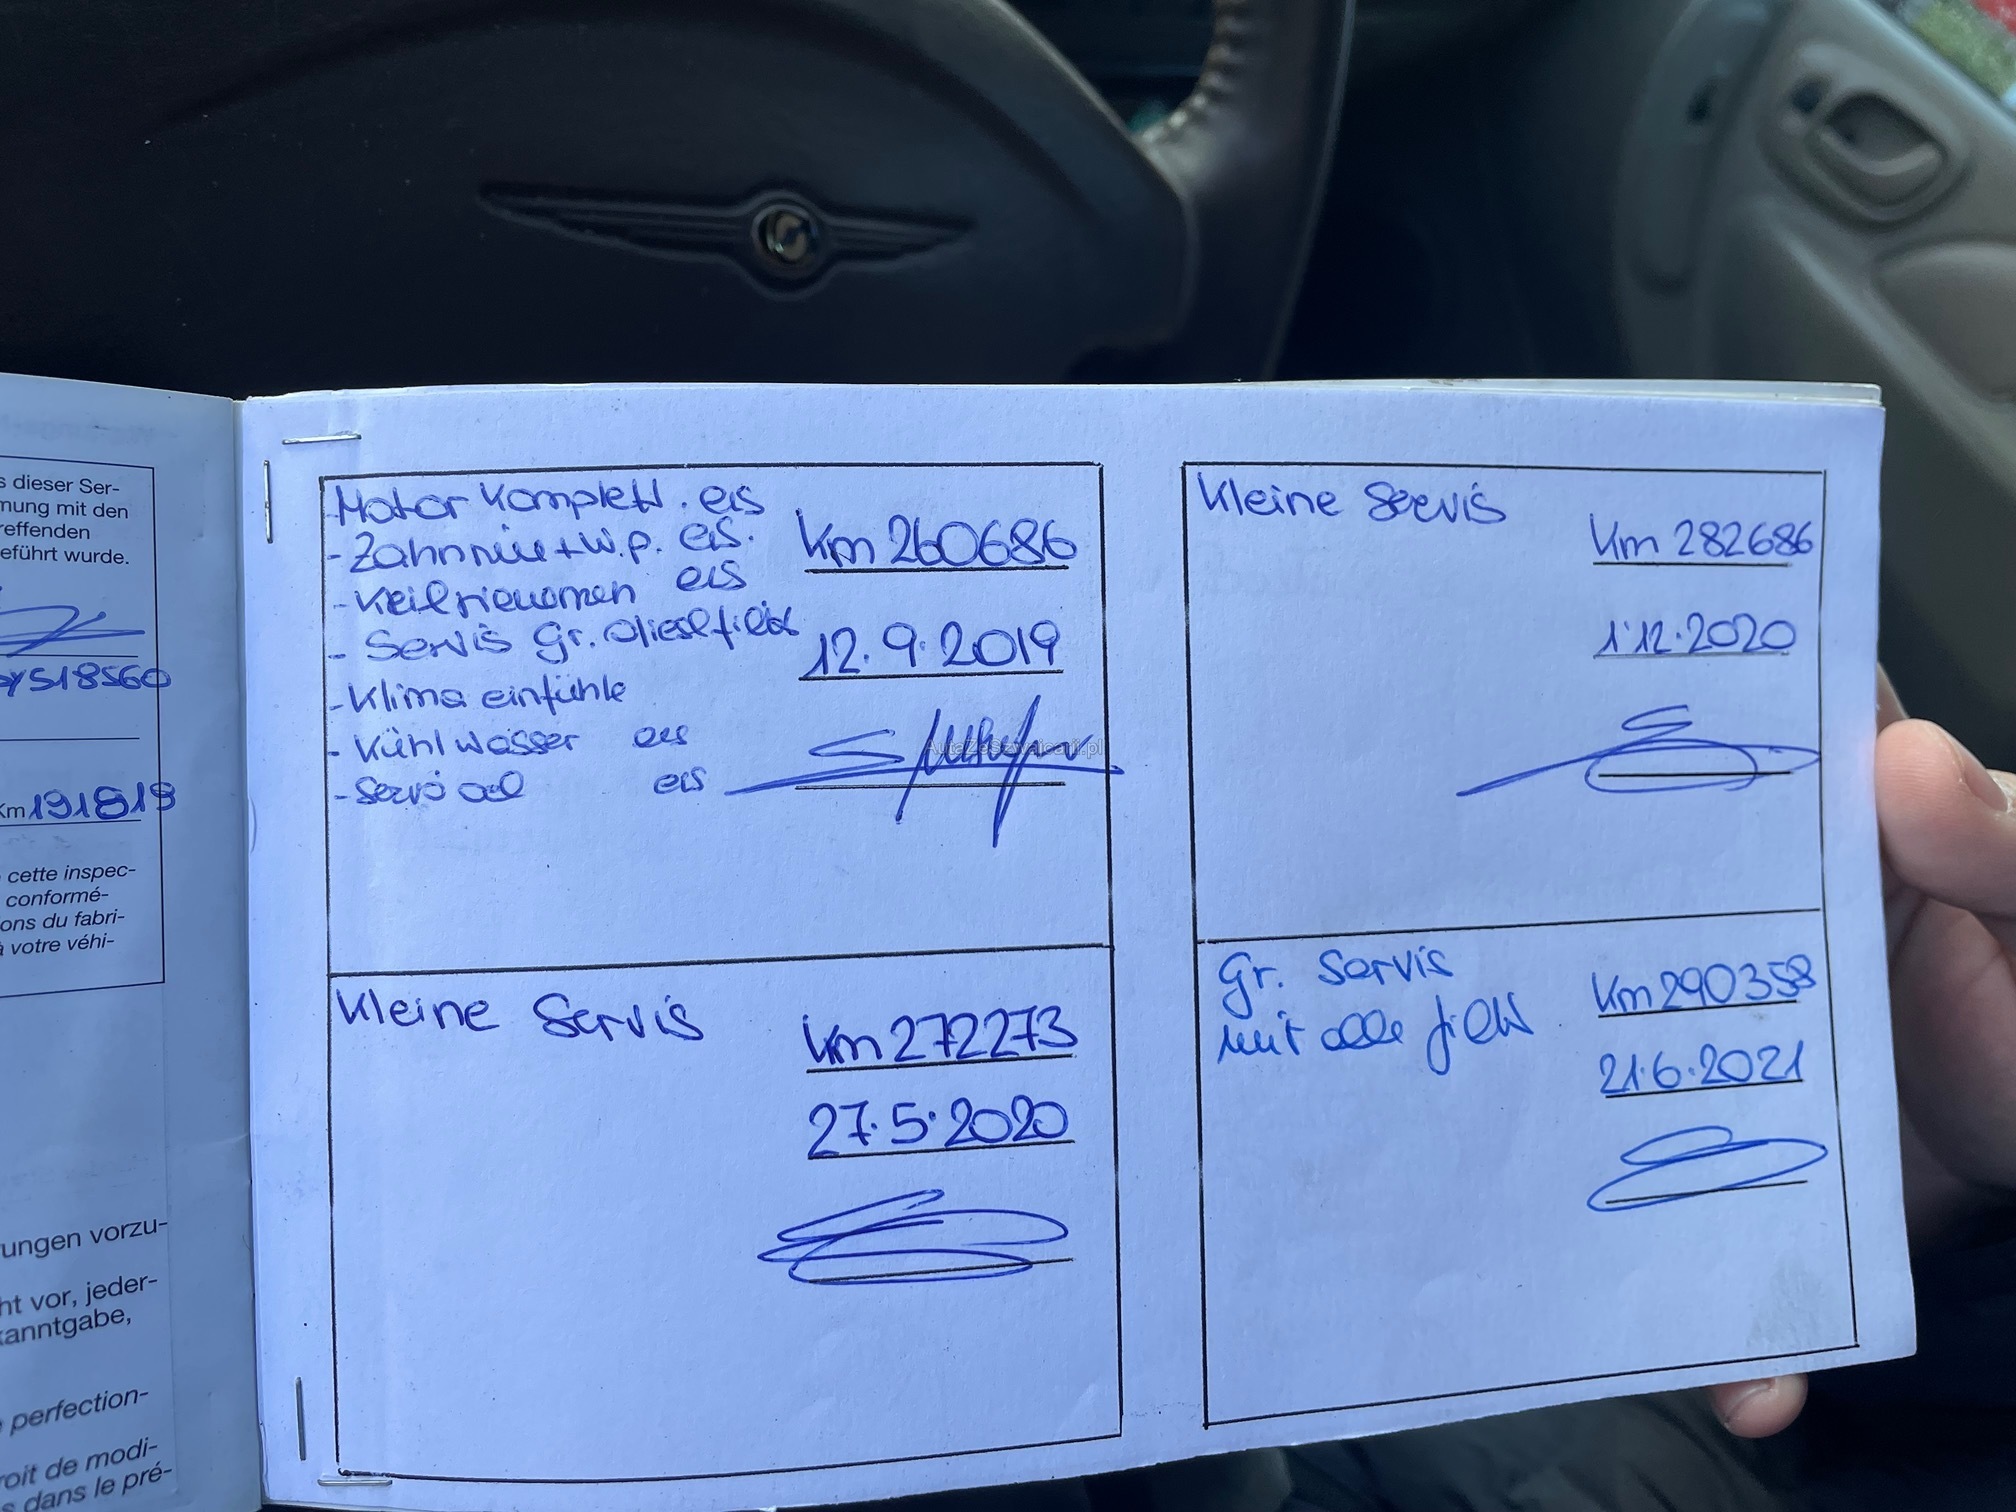 s dieser Ser-
mung mit den
reffenden
eführt wurde.
Y518560
Km 191819
cette inspec-
conformé-
ons du fabri-
à votre véhi-
rungen vorzu-
ht vor, jeder-
kanntgabe,
perfection-
roit de modi-
s dans le pré-
Motor Komplett. ers
- Zahnrie + W.p. ers.
- Keilriemen ers
- Servis gr. Dieselfilter
- Klima einfühle
- Kühlwasser ers
- Servo oel ers
Km 260686
12.9.2019
AutaZeSzwajcarii.pl
Kleine Servis
Km 272273
27.5.2020
Kleine Servis
Km 282686
1.12.2020
Gr. Servis
mit alle filter
Km 290358
21.6.2021